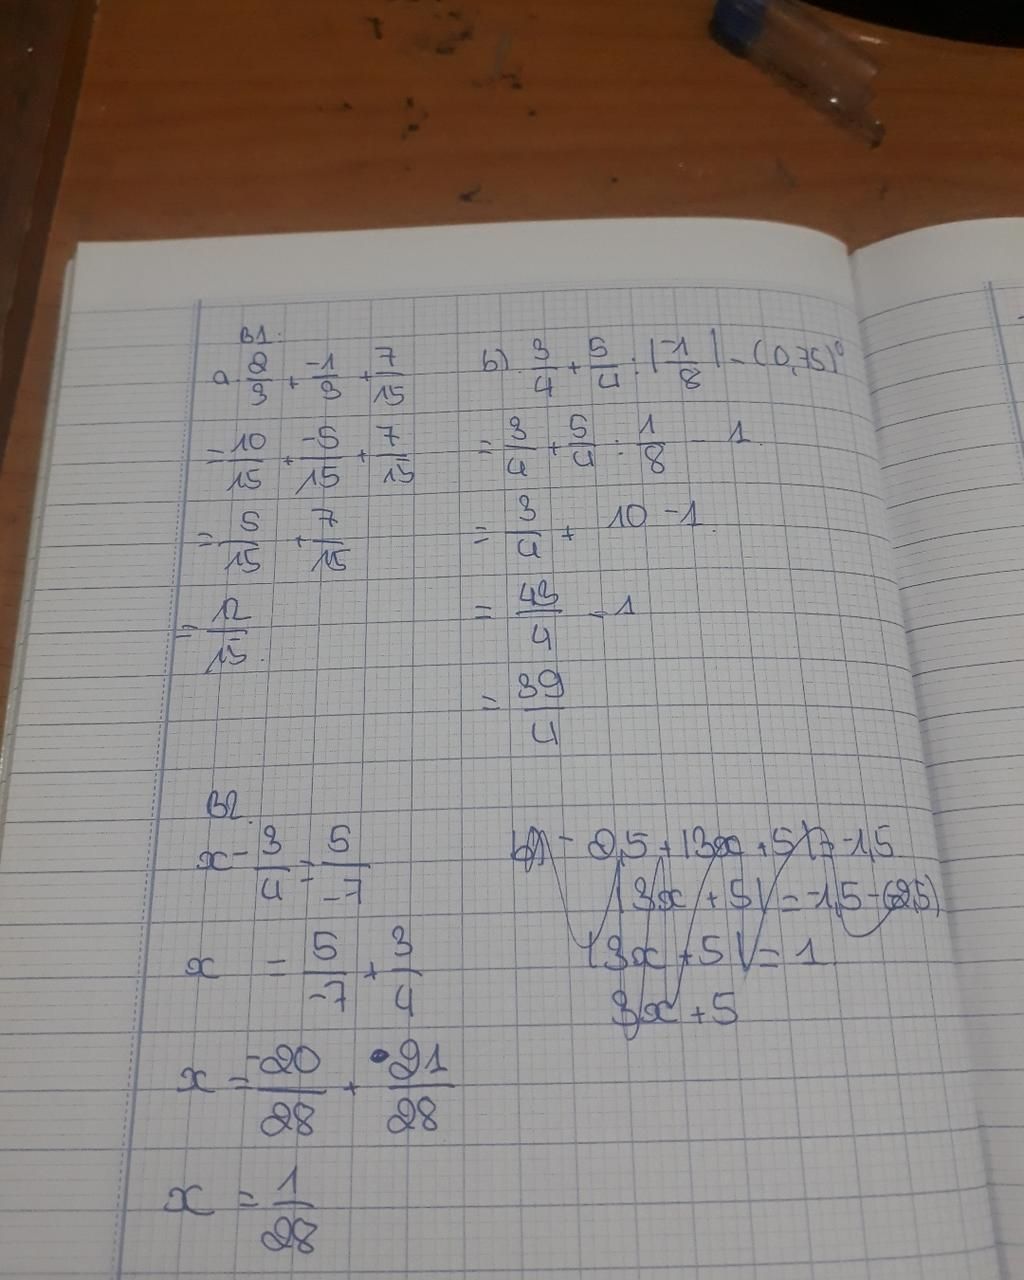 B1:
a. 2/3 + -1/3 + 7/15
= 10/15 + -5/15 + 7/15
= 5/15 + 7/15
= 12/15.
b) 3/4 + 5/4 : |-1/8| - (0,75)⁰
= 3/4 + 5/4 : 1/8 - 1.
= 3/4 + 10 - 1.
= 43/4 - 1
= 39/4
B2.
x - 3/4 = 5/-7
x = 5/-7 + 3/4
x = -20/28 + 21/28
x = 1/28
- 2,5 + |3x + 5| = -1,5
|3x + 5| = -1,5 - (-2,5)
|3x + 5| = 1
3x + 5